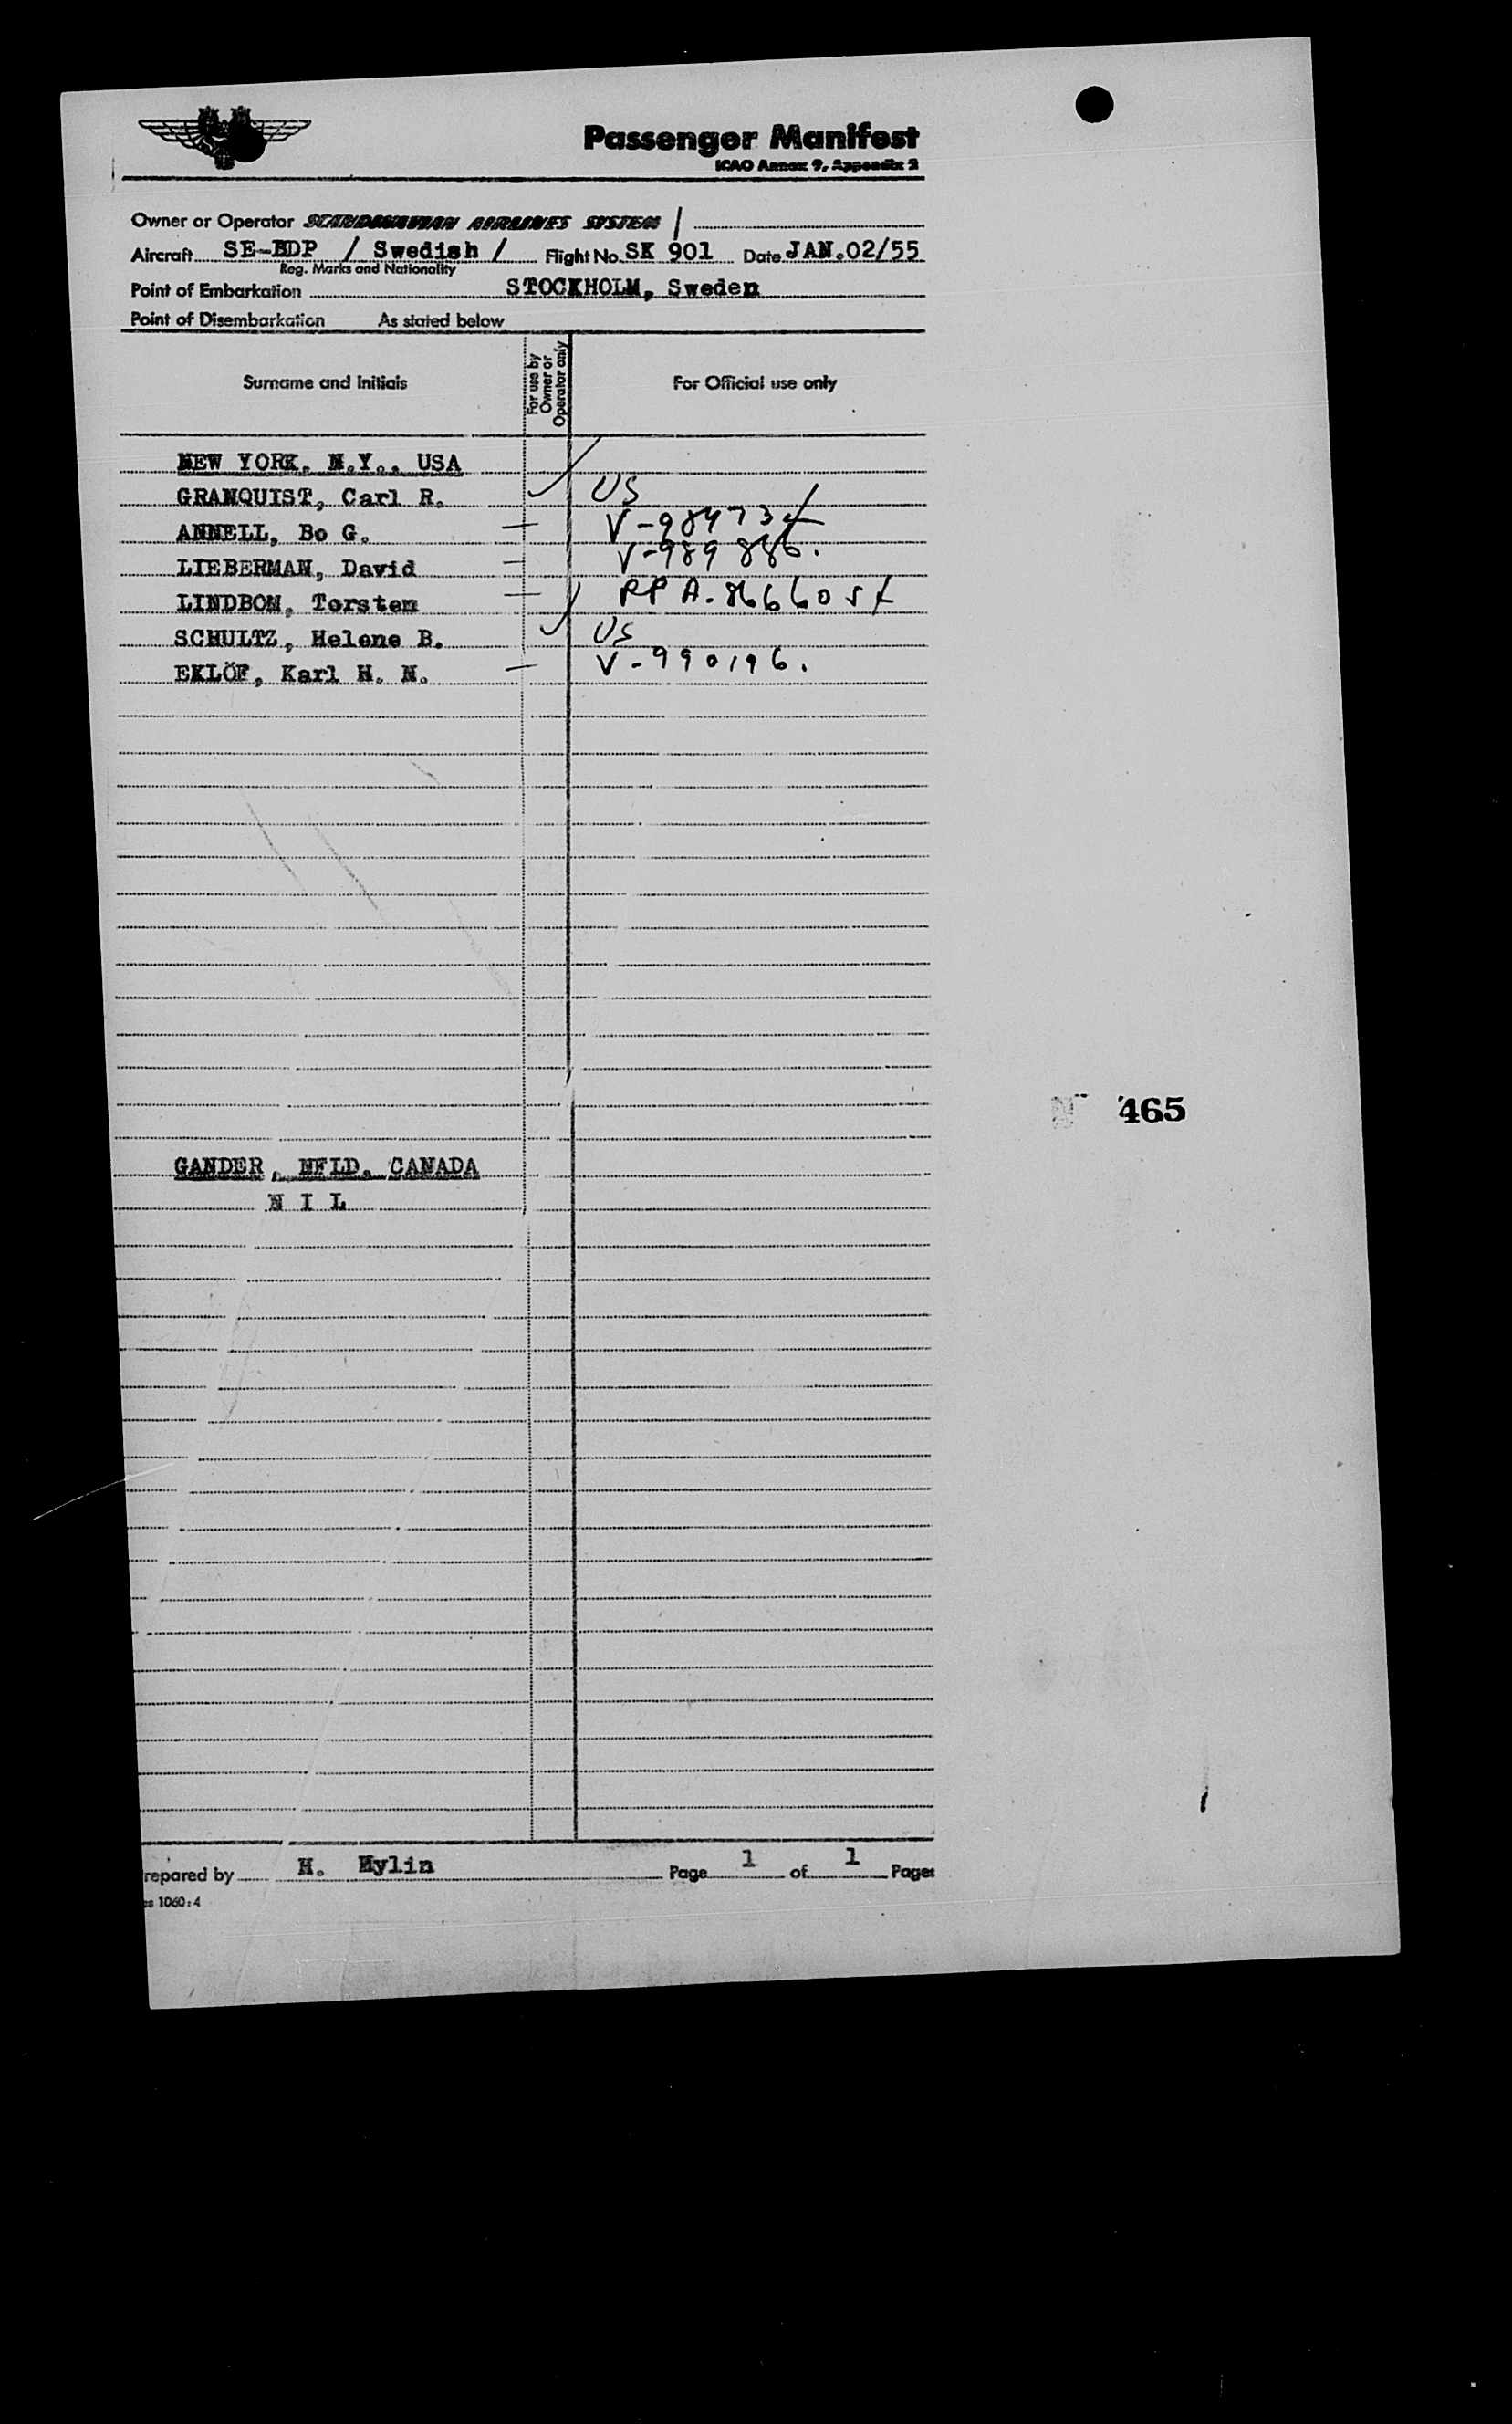 Passenger Manifest
ICAO Annex 9, Appendix 2
Owner or Operator SCANDINAVIAN AIRLINES SYSTEM /
Aircraft SE-BDP / Swedish / Flight No. SK 901 Date JAN.02/55
Reg. Marks and Nationality
Point of Embarkation STOCKHOLM, Sweden
Point of Disembarkation As stated below
Surname and Initials For use by Owner or Operator only For Official use only
NEW YORK, N.Y., USA
GRANQUIST, Carl R. US
ANNELL, Bo G. V-98473
LIEBERMAN, David V-989886.
LINDBOM, Torsten RP A-866605
SCHULTZ, Helene B. US
EKLÖF, Karl H. N. V-990196.
465
GANDER, NFLD. CANADA
N I L
repared by H. Mylin Page 1 of 1 Pages
es 1060:4